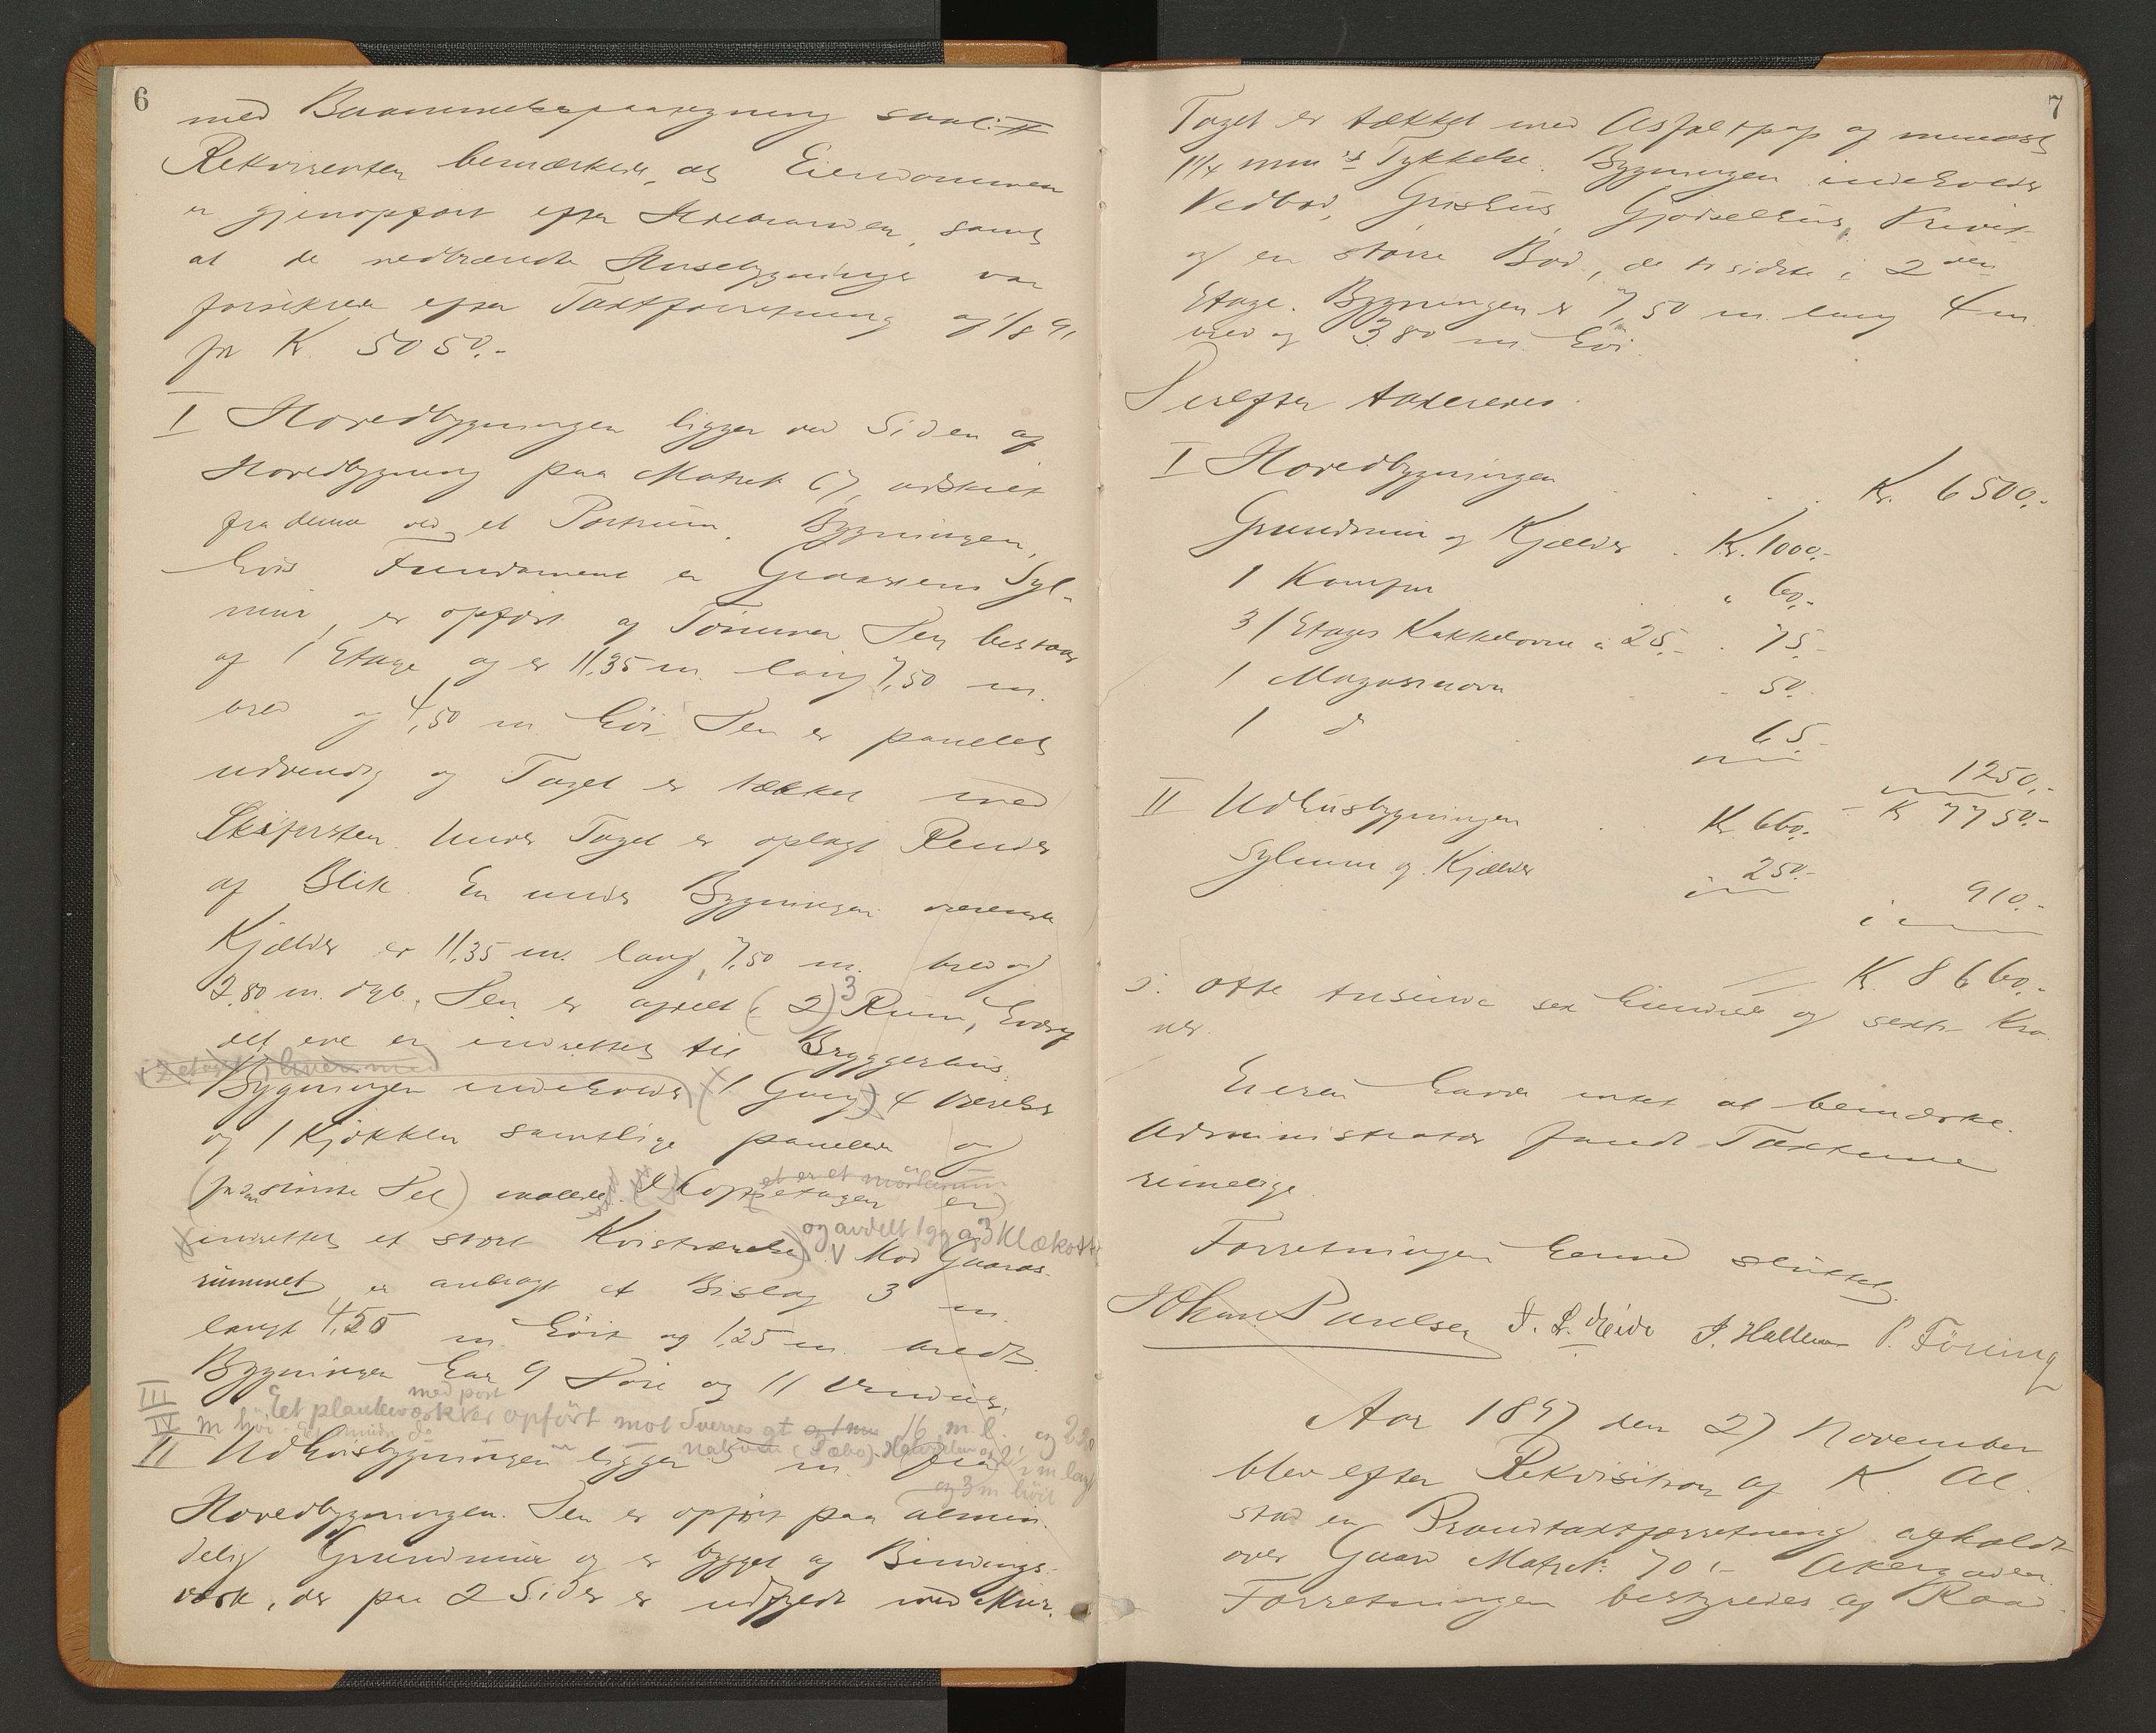 6
med
Rekvirenten bemærkede, at Eiendommen
er gjenopført efter Ildebranden, samt
at de nedbrændte Husebygninger var
forsikrede efter Taxtforretning af 1/8 91
for K. 5050.-
I Hovedbygningen ligger ved Siden af
Hovedbygning paa Matrk 67, adskilt
fra denne ved et Portrum. Bygningen,
hvis Fundament er Graasteens Syl-
mur, er opført af Tømmer Den bestaar
af 1 Etage og er 11,35 m. lang 7,50 m.
bred og 4,50 m høi. Den er panelet
udvendig og Taget er tækket med
Skifersten. Under Taget er oplagt Render
af Blik. En under Bygningen værende
Kjælder er 11,35 m. lang, 7,50 m. bred og
2,80 m. dyb. Den er afdelt i (2) 3 Rum, hvoraf
det ene er indrettet til Bryggerhus.
Bygningen indeholder (1 Gang) 4 Værelser
og 1 Kjøkken samtlige panelede og
(for en større Del) malede. I Loftsetagen er
indrettet et stort Kvistværelse). V Mod Gaards-
og avdelt 1 gg og 3 Klækott
rummet er anbragt et Bislag 3 m.
langt 4,25 m høit og 1,25 m. bredt.
Bygningen har 9 Døre og 11 Vinduer.
III Et plankeværk er opført mot Sverres gt 16 m. l. og 2.20
med port
IV m høi
II Udhusbygningen ligger 5 m. fra
og 3 m høit
Hovedbygningen. Den er opført paa almin-
delig Grundmur og er bygget af Bindings-
værk, der paa 2 Sider er udfyldt med Mur.
7
Taget er tækket med Asfaltpap af mindst
1 1/4 mm's Tykkelse. Bygningen indeholder
Vedbod, Grishus, Gjødselhus, Privet
og en større Bod, de to sidste i 2den
Etage. Bygningen er 7,50 m. lang 4 m.
bred og 3.80 m. høi.
Derefter taxeredes.
I Hovedbygningen . . . . Kr. 6500.-
Grundmur og Kjælder . Kr. 1000.-
1 Komfur " 60.-
3 1 Etages Kakkelovne a 25.- . 75.-
1 Magasinovn 50.
1 d 65.-
1250.-
Kr 7750.-
II Udhusbygningen . Kr 660.-
Sylmur og Kjælder 250.-
910.-
Kr. 8660.-
ɔ: otte tusinde sex hundrede og sexti Kro-
ner.
Eieren havde intet at bemærke.
Administrator fandt Taxterne
rimelige.
Forretningen hermed sluttet.
Johan Paulsen J. L. Heide P. Föning
Aar 1897 den 27 November
blev efter Rekvisition af K. Al-
stad en Brandtaxtforretning afholdt
over Gaard Matrk: 70 i Akergaden.
Forretningen bestyredes af Raad-